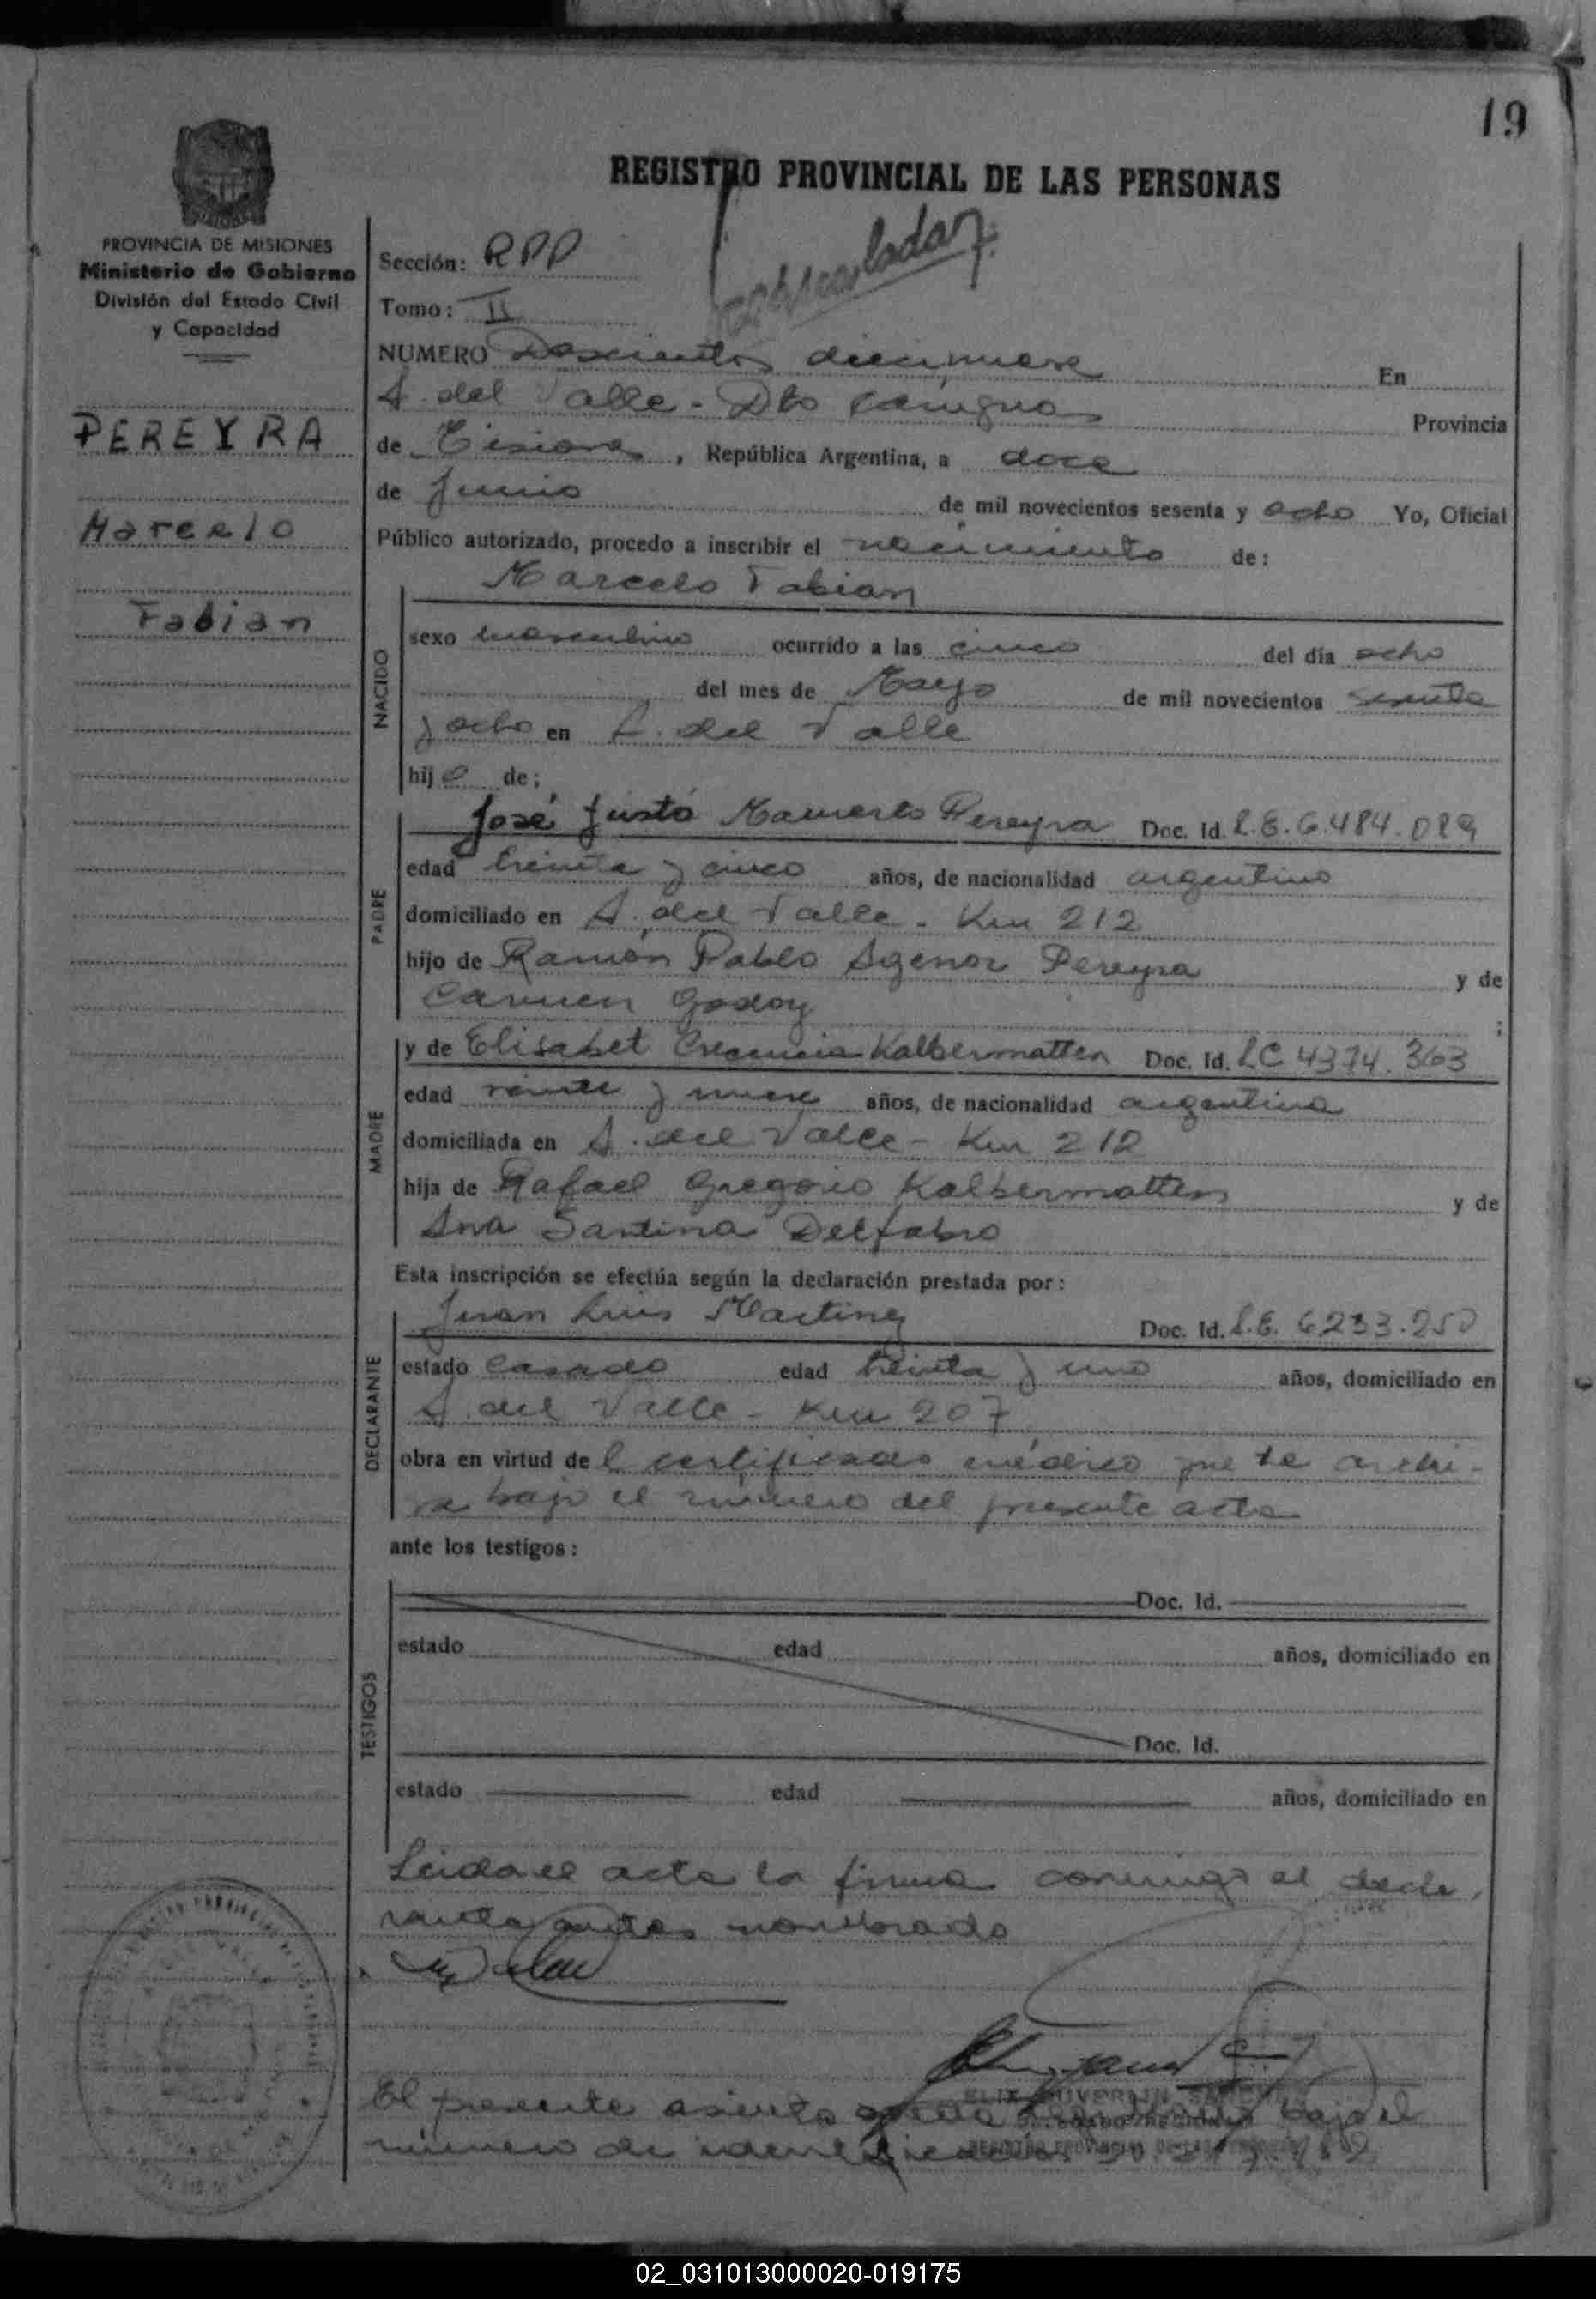 19
REGISTRO PROVINCIAL DE LAS PERSONAS
PROVINCIA DE MISIONES
Ministerio de Gobierno
División del Estado Civil
y Capacidad
PEREYRA
Marcelo
Fabian
Sección: RPP
Tomo: II
NUMERO Doscientos diecinueve En
A. del Valle - Dto Cainguas Provincia
de Misiones, República Argentina, a doce
de Junio de mil novecientos sesenta y ocho Yo, Oficial
Público autorizado, procedo a inscribir el nacimiento de:
Marcelo Fabian
NACIDO
sexo masculino ocurrido a las cinco del día ocho
del mes de Mayo de mil novecientos sesenta
y ocho en A. del Valle
hijo de:
PADRE
José Justo Mamerto Pereyra Doc. Id. L.E. 6.484.089
edad treinta y cinco años, de nacionalidad argentino
domiciliado en A. del Valle - Km 212
hijo de Ramón Pablo Agenor Pereyra y de
Carmen Godoy ;
MADRE
y de Elisabet Crecencia Kalbermatten Doc. Id. LC 4374.363
edad veinte y nueve años, de nacionalidad argentina
domiciliada en A. del Valle - Km 212
hija de Rafael Gregorio Kalbermatten y de
Ana Santina Delfabro
Esta inscripción se efectúa según la declaración prestada por:
DECLARANTE
Juan Luis Martinez Doc. Id. L.E. 6233.250
estado casado edad treinta y uno años, domiciliado en
A. del Valle - Km 207
obra en virtud del certificado médico que se archi-
va bajo el número del presente acta
ante los testigos:
TESTIGOS
Doc. Id.
estado edad años, domiciliado en
Doc. Id.
estado edad años, domiciliado en
Leida el acta la firma conmigo el decla
rante antes nombrado
El presente asiento bajo el
número de
02_031013000020-019175